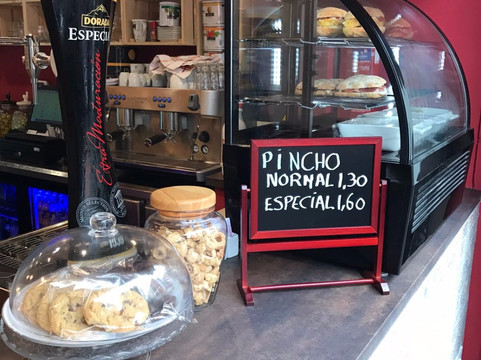 DORADA
ESPECIAL
PINCHO
NORMAL 1,30
ESPECIAL 1,60